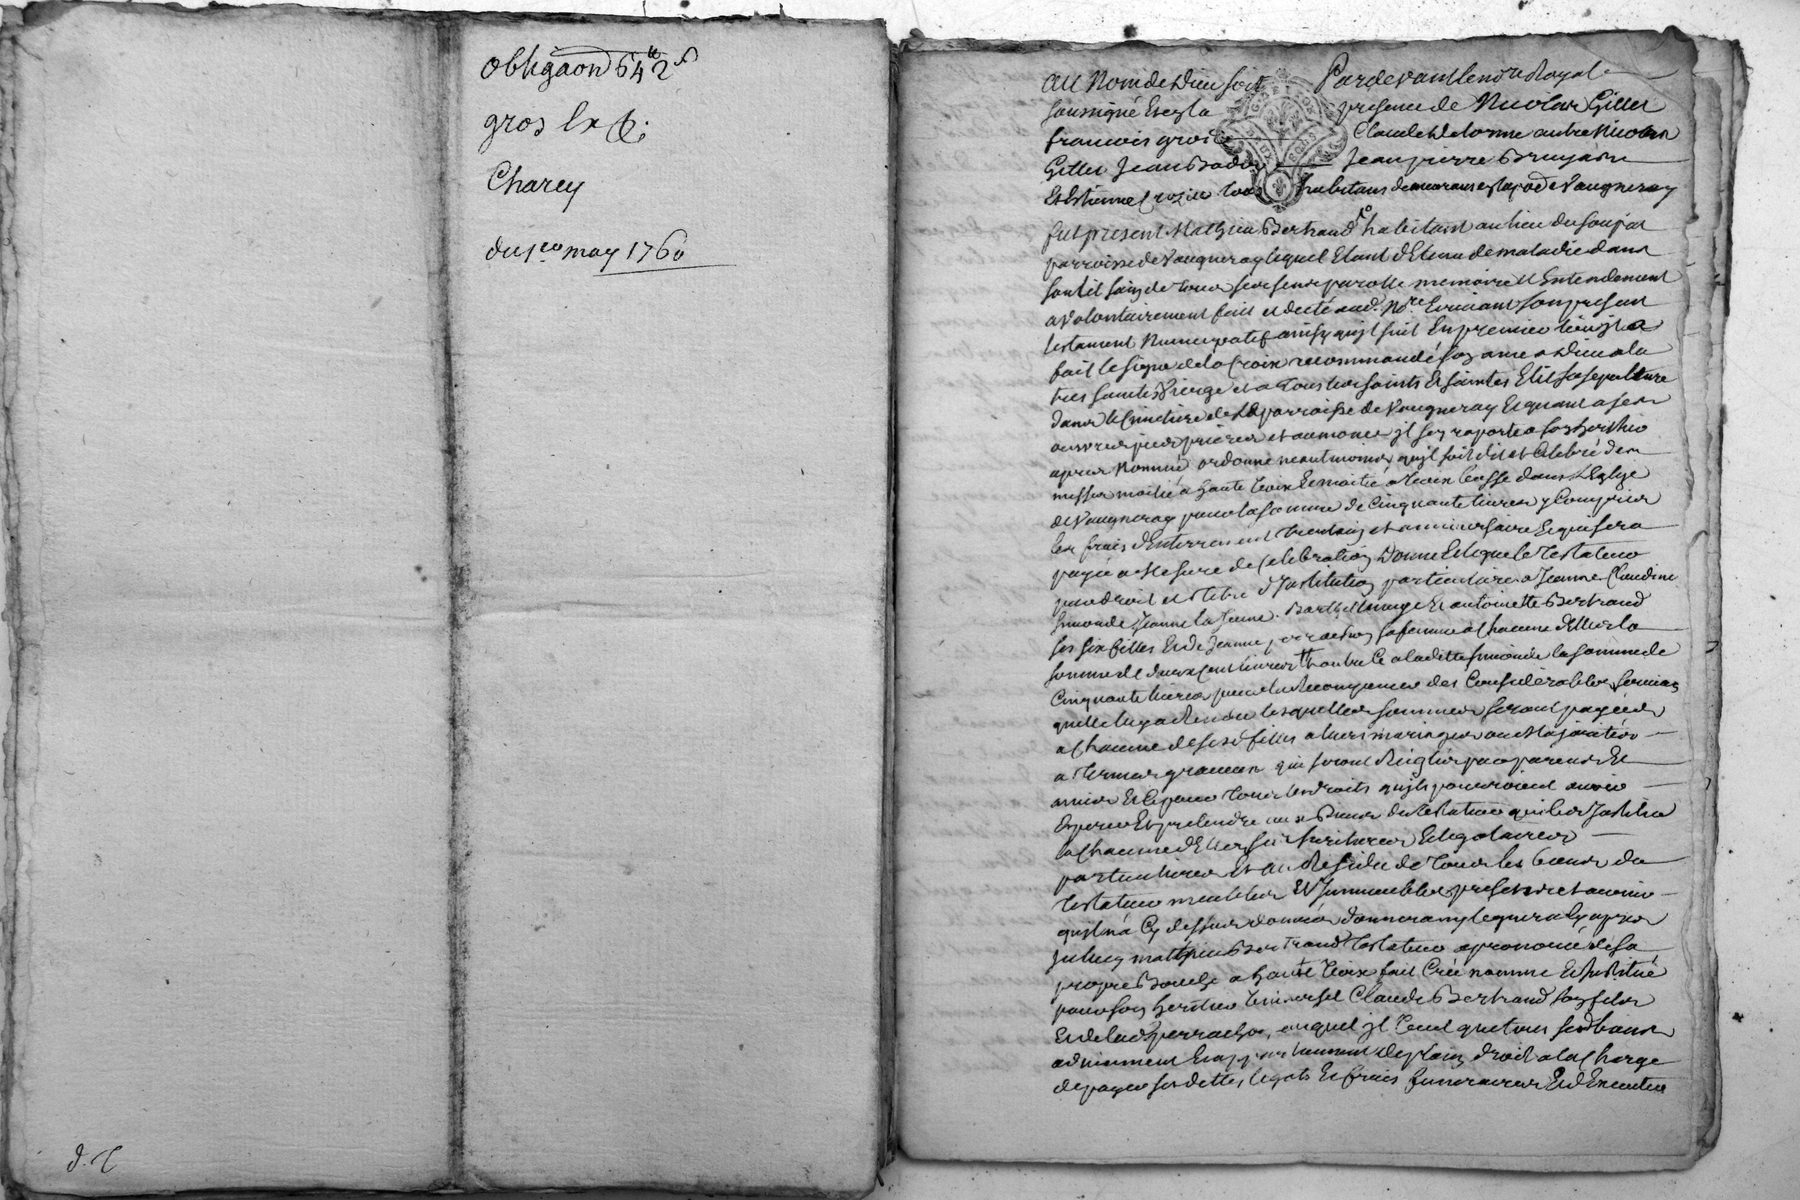 obligaon 64ᵗᵗ 2ˢ
gros
Charey
du 1er may 1760
d. C
Au Nom de Dieu soit Pardevant le nore Royal
soussigné Et en la presence de Nicolas Gillet
francois gros Claude Delorme autre Nicolas
Gillet Jean Jean pierre Bruyas
Et Estienne Crozier tous habitans demeurans en la pa de Vaugneray
fut present Mathieu Bertrand habitant au lieu du
parroisse de Vaugneray lequel Etant detenu de maladie dans
son lit sain de tous ses sens parolle memoire et Entendement
a Volontairement fait et dicté aud. Nre Ecrivant son present
testament Nuncupatif ainsy quil suit En premier lieu jl a
fait le signe de la Croix recommandé son ame a Dieu a la
tres sainte Vierge et a tous les saints et saintes Elit sa sepulture
dans le Cimetiere de la parroisse de Vaugneray Et quant a ses
oeuvres pies prieres et aumones jl sen raporte a son heritier
apres Nommé ordonne neantmoins quil soit dit et Celebré des
messes moitié a haute Voix Et moitié a Voix basse dans l'Eglise
de Vaugneray pour la somme de Cinquante livres y Compris
les frais d'Enterrement trentain et anniversaire Ce qui sera
payé a Mesure de Celebration Donne Et legue le Testateur
pour droit et titre d'Institution particuliere a Jeanne Claudine
Simonde Jeanne la Jeune Barthelemye Et antoinette Bertrand
ses six filles Et de Jeanne perrachon sa femme a Chacune d'Elles la
somme de deux Cent livres outre Ce a la ditte Simonde la somme de
Cinquante livres pour la Recompence des Considerables services
quelle luy a Rendu lesquelles sommes seront payées
a Chacune de sesd filles a leurs mariages ou Majorités
a termes gracieux qui seront Reiglés par parens Et
amis Et Ce pour tous les droits quils pourroient avoir
Esperer Et pretendre aux Biens du testateur qui les Institue
a Chacune d'Elles ses heritieres Et legataires
particulieres Et au Residu de tous les biens du
testateur meubles Et Jmmeubles presents et avenir
quil n'a Cy dessus donnés donnera ny leguera Cy apres
Jceluy mathieu Bertrand testateur a prononcé de sa
propre Bouche a haute Voix fait Crée nomme Et Institué
pour son heritier Universel Claude Bertrand son fils
Et de lad perrachon, auquel jl Veut que tous sesd biens
adviennent Et appartiennent de plain droit a la Charge
de payer ses dettes legats Et frais funeraires Et d'Executer